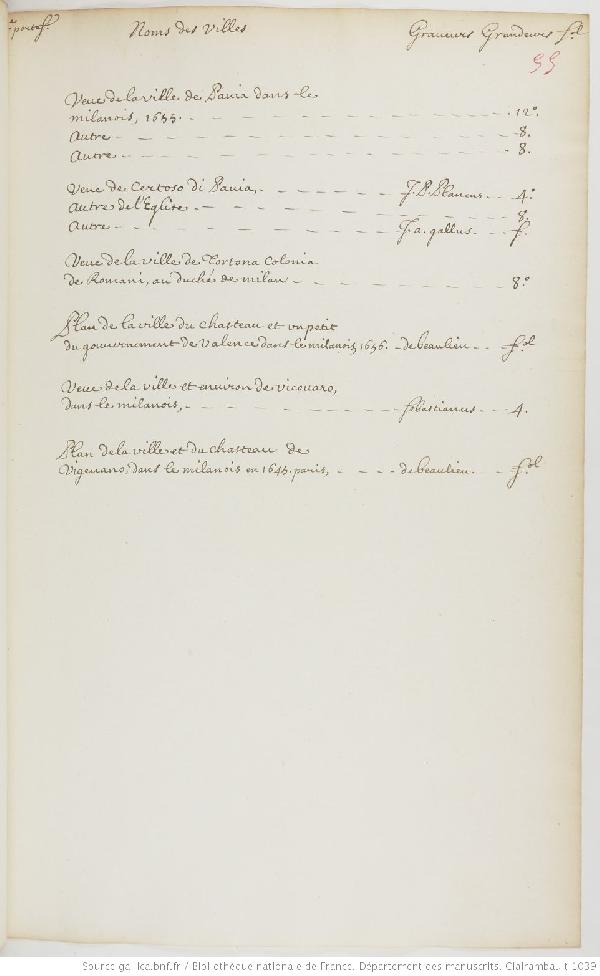 portef. Noms des Villes Graveurs Grandeurs
55
Veue de la ville de Pavia dans le
milanois, 1655. 12°.
Autre 8.
Autre 8.
Veue de Certoso di Pavia, J. B. Blancus 4°
Autre de l'Eglise 8.
Autre J. a. gallus f.
Veue de la ville de Tortona Colonia
de Romani, au duché de milan 8°
Plan de la ville du chasteau et un petit
du gouvernement de Valence dans le milanois, 1656. de beaulieu fol
Veue de la ville et environ de vicovaro,
dans le milanois, sebastianus 4.
Plan de la ville et du chasteau de
Vigevano, dans le milanois en 1645. paris, de beaulieu fol
Source gallica.bnf.fr / Bibliothèque nationale de France. Département des manuscrits. Clairambault 1039